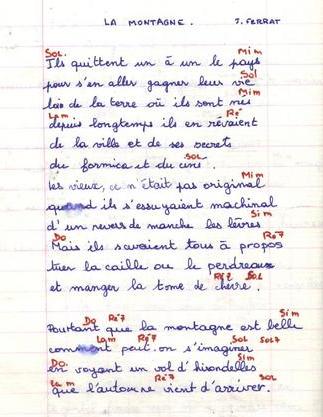 LA MONTAGNE. J. FERRAT
Sol. Mim
Ils quittent un à un le pays
Sol
pour s'en aller gagner leur vie
Mim
loin de la terre où ils sont nés
Lam Ré
depuis longtemps ils en rêvaient
de la ville et de ses secrets
Sol
du formica et du ciné.
Mim
les vieux, ce n'était pas original
quand ils s'essuyaient machinal
Sim
d'un revers de manche les lèvres
Do Ré7
Mais ils savaient tous à propos
tuer la caille ou le perdreau
Ré7 Sol
et manger la tome de chèvre.
Do Ré7 Sim
Pourtant que la montagne est belle
Lam Ré7 Sol Sol7
comment peut.on s'imaginer
Do. Sim
en voyant un vol d'hirondelles
Lam Ré7 Sol
que l'automne vient d'arriver.